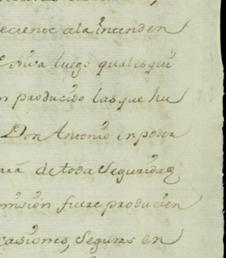 ecienc ala Incenden
luego qualesqui
producido las que hu
Don Antonio in poder
de toda Seguridad
mision fuere producien
casiones, Seguras en